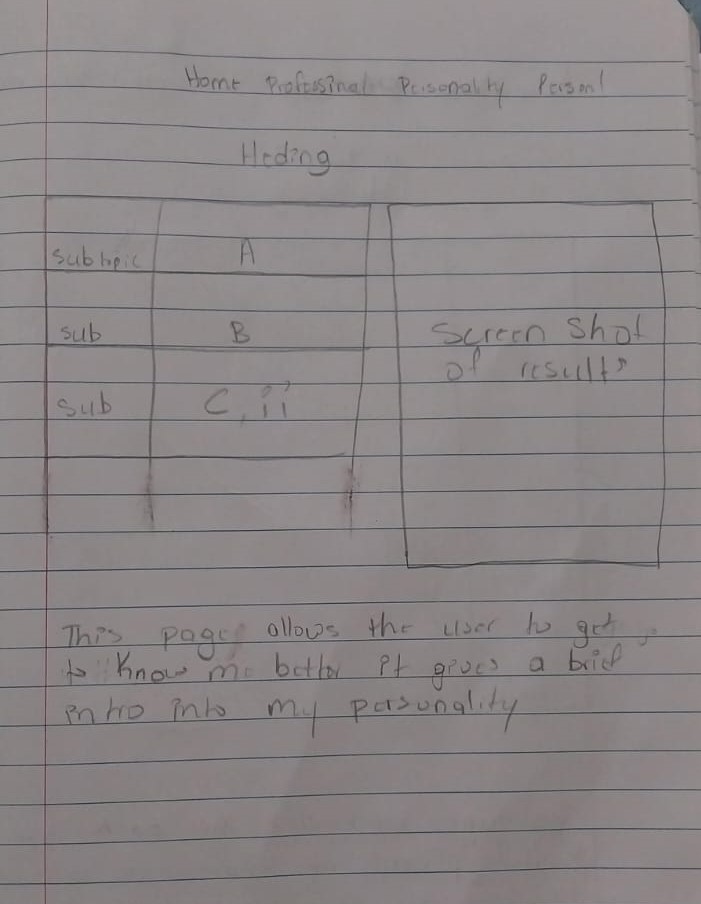 Home Professinal Personality Personl
Heding
Subtopic A
sub B
Sub C, ii
Screen Shot
of results
This page allows the user to get
to Know me better it gives a brief
intro into my personality